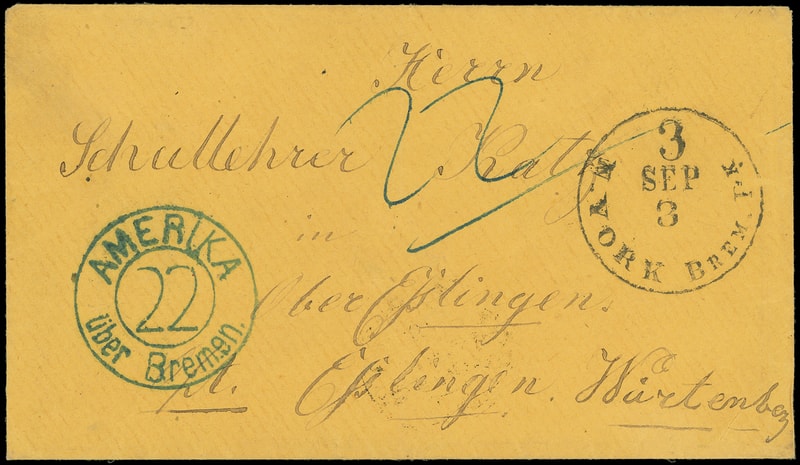 Herrn
Schullehrer Katz
22
in
Ober Eßlingen.
pt. Eßlingen. Würtenberg
AMERIKA
22
über Bremen.
3
SEP
3
N. YORK BREM. PK.